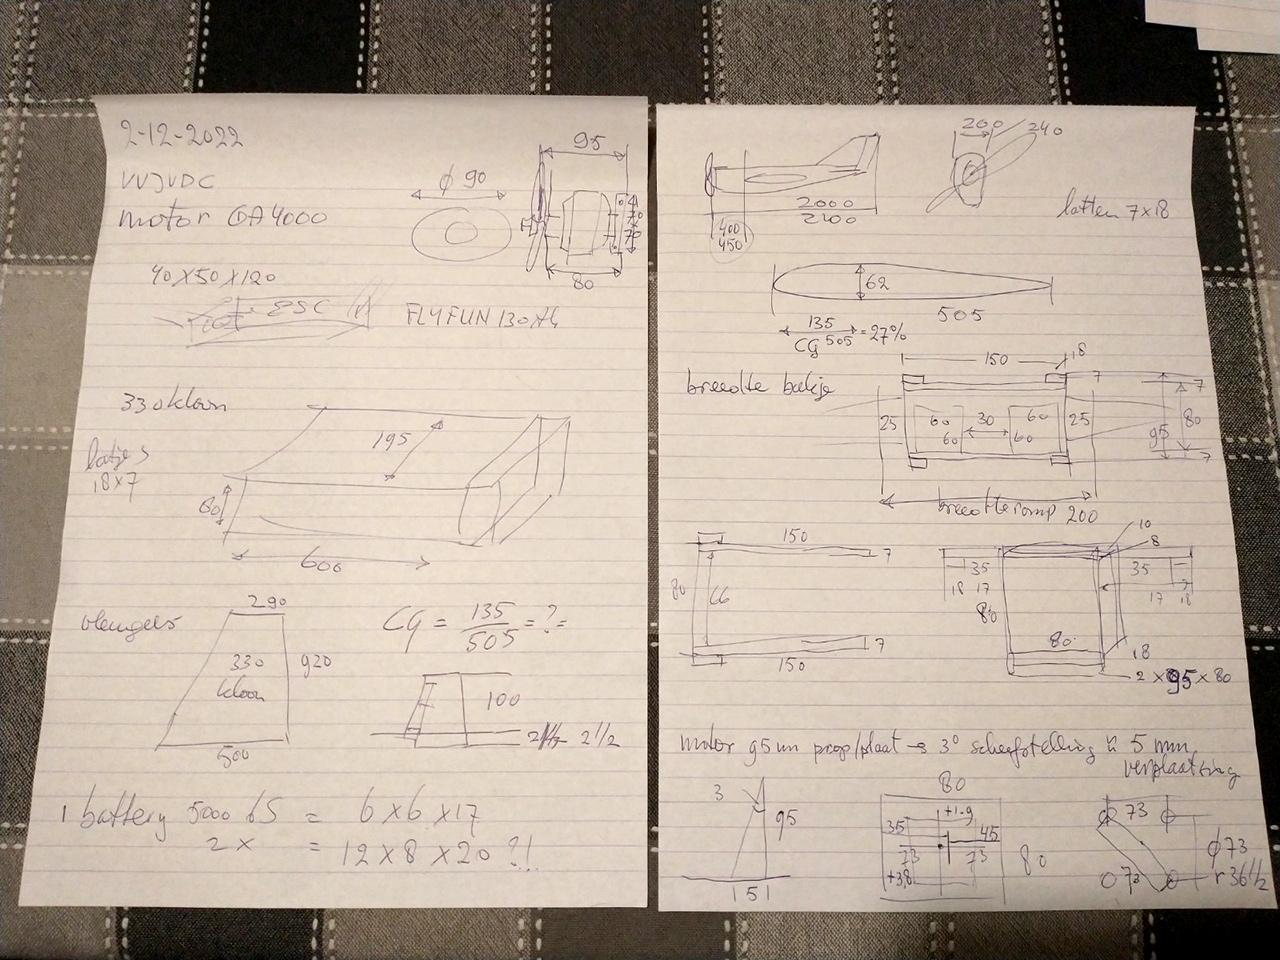 2-12-2022
95
φ 90
motor QA4000
80
40x50x120
ESC
FLYFUN 130A
330 kloon
195
latjes
18x7
80
600
vleugels
290
330
kloon
920
500
CG = 135/505 = ? =
100
2 1/2
1 battery 5000 6S = 6x6x17
2x = 12x8x20 ?!
200
240
latten 7x18
2000
2100
400
450
62
505
135
CG 505 = 27%
150
18
breedte bakje
7
7
25
60
60
30
60
60
25
95
80
7
breedte romp 200
150
7
80
66
7
150
10
8
35
18 17
80
35
17 18
80
18
2 x 95 x 80
motor 95 mm prop/plaat → 3° scheefstelling is 5 mm
verplaatsing
3
95
151
80
+1.9
35
45
73
73
+38
80
73
φ73
73
r 36 1/2